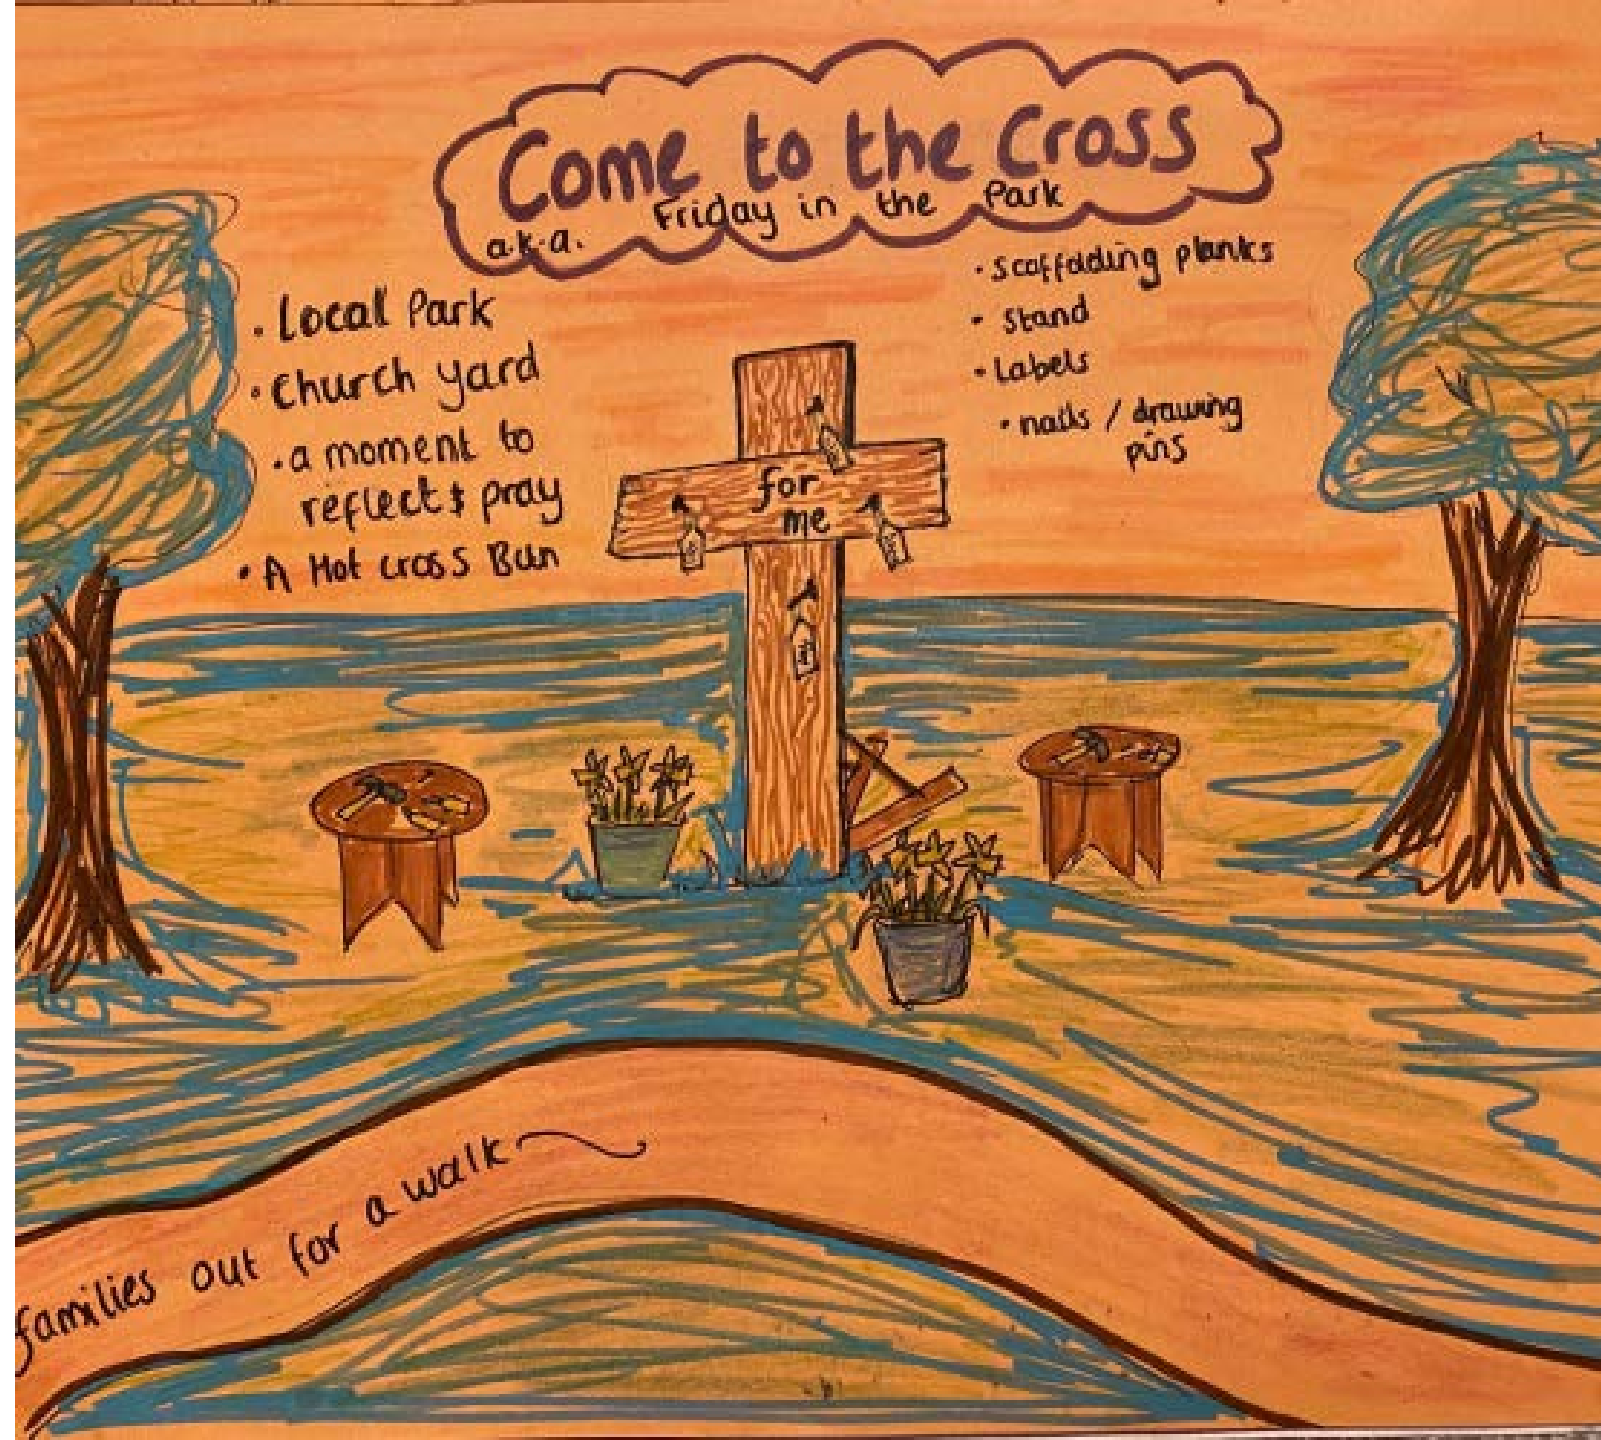 Come to the Cross
a.k.a. Friday in the Park
• Local Park
• Church yard
• a moment to
reflect & pray
• A Hot cross Bun
• Scaffolding planks
• Stand
• Labels
• nails / drawing
pins
for
me
families out for a walk